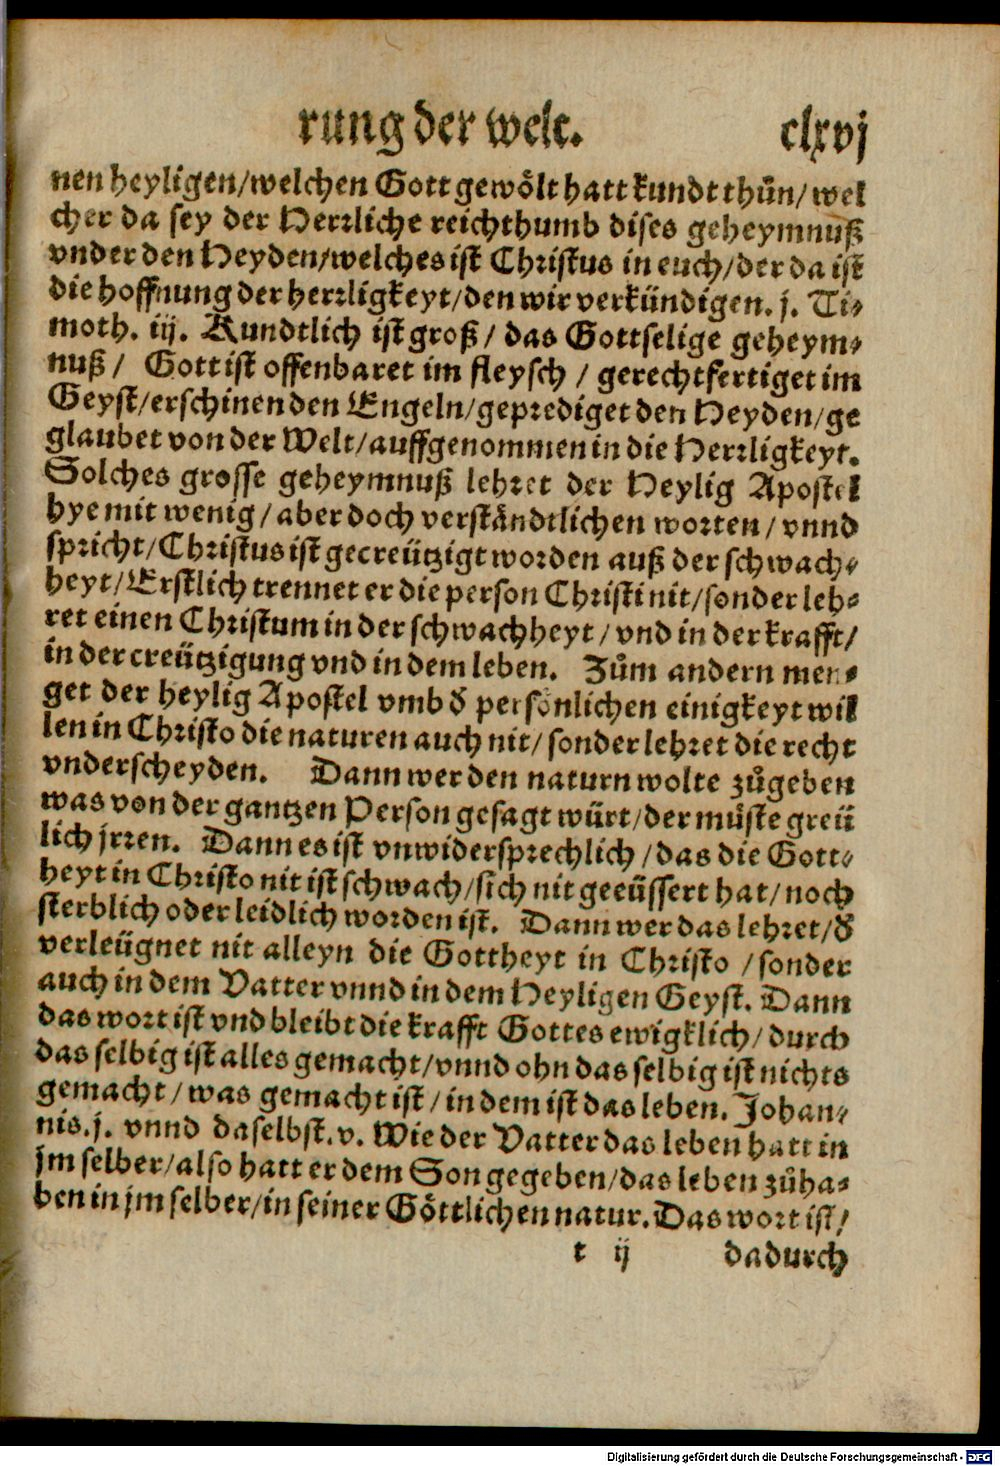 rung der welt. clxvj
nen heyligen/welchen Gott gewölt hatt kundt thůn/ wel
cher da sey der Herrliche reichthumb dises geheymnuß
vnder den Heyden/welches ist Christus in euch/der da ist
die hoffnung der herrligkeyt/den wir verkündigen. j. Ti⸗
moth. iij. Kundtlich ist groß/ das Gottselige geheym⸗
nuß/ Gott ist offenbaret im fleysch / gerechtfertiget im
Geyst/erschinen den Engeln/geprediget den Heyden/ge
glaubet von der Welt/auffgenommen in die Herrligkeyt.
Solches grosse geheymnuß lehret der Heylig Apostel
hye mit wenig/aber doch verständtlichen worten/ vnnd
spricht/Christus ist gecreützigt worden auß der schwach⸗
heyt/Erstlich trennet er die person Christi nit/sonder leh⸗
ret einen Christum in der schwachheyt/vnd in der krafft/
in der creützigung vnd in dem leben. Zům andern men⸗
get der heylig Apostel vmb d̕ persönlichen einigkeyt wil
len in Christo die naturen auch nit/ sonder lehret die recht
vnderscheyden. Dann wer den naturn wolte zůgeben
was von der gantzen Person gesagt würt/der můste greü
lich jrren. Dann es ist vnwidersprechlich/das die Gott⸗
heyt in Christo nit ist schwach/sich nit geeüssert hat/noch
sterblich oder leidlich worden ist. Dann wer das lehret/d̕
verleügnet nit alleyn die Gottheyt in Christo /sonder
auch in dem Vatter vnnd in dem Heyligen Geyst. Dann
das wort ist vnd bleibt die krafft Gottes ewigklich/durch
das selbig ist alles gemacht/vnnd ohn das selbig ist nichts
gemacht/was gemacht ist/in dem ist das leben. Johan⸗
nis. j. vnnd daselbst. v. Wie der Vatter das leben hatt in
jm selber/also hatt er dem Son gegeben/das leben zůha⸗
ben in jm selber/in seiner Göttlichen natur. Das wort ist/
t ij dadurch
Digitalisierung gefördert durch die Deutsche Forschungsgemeinschaft - DFG